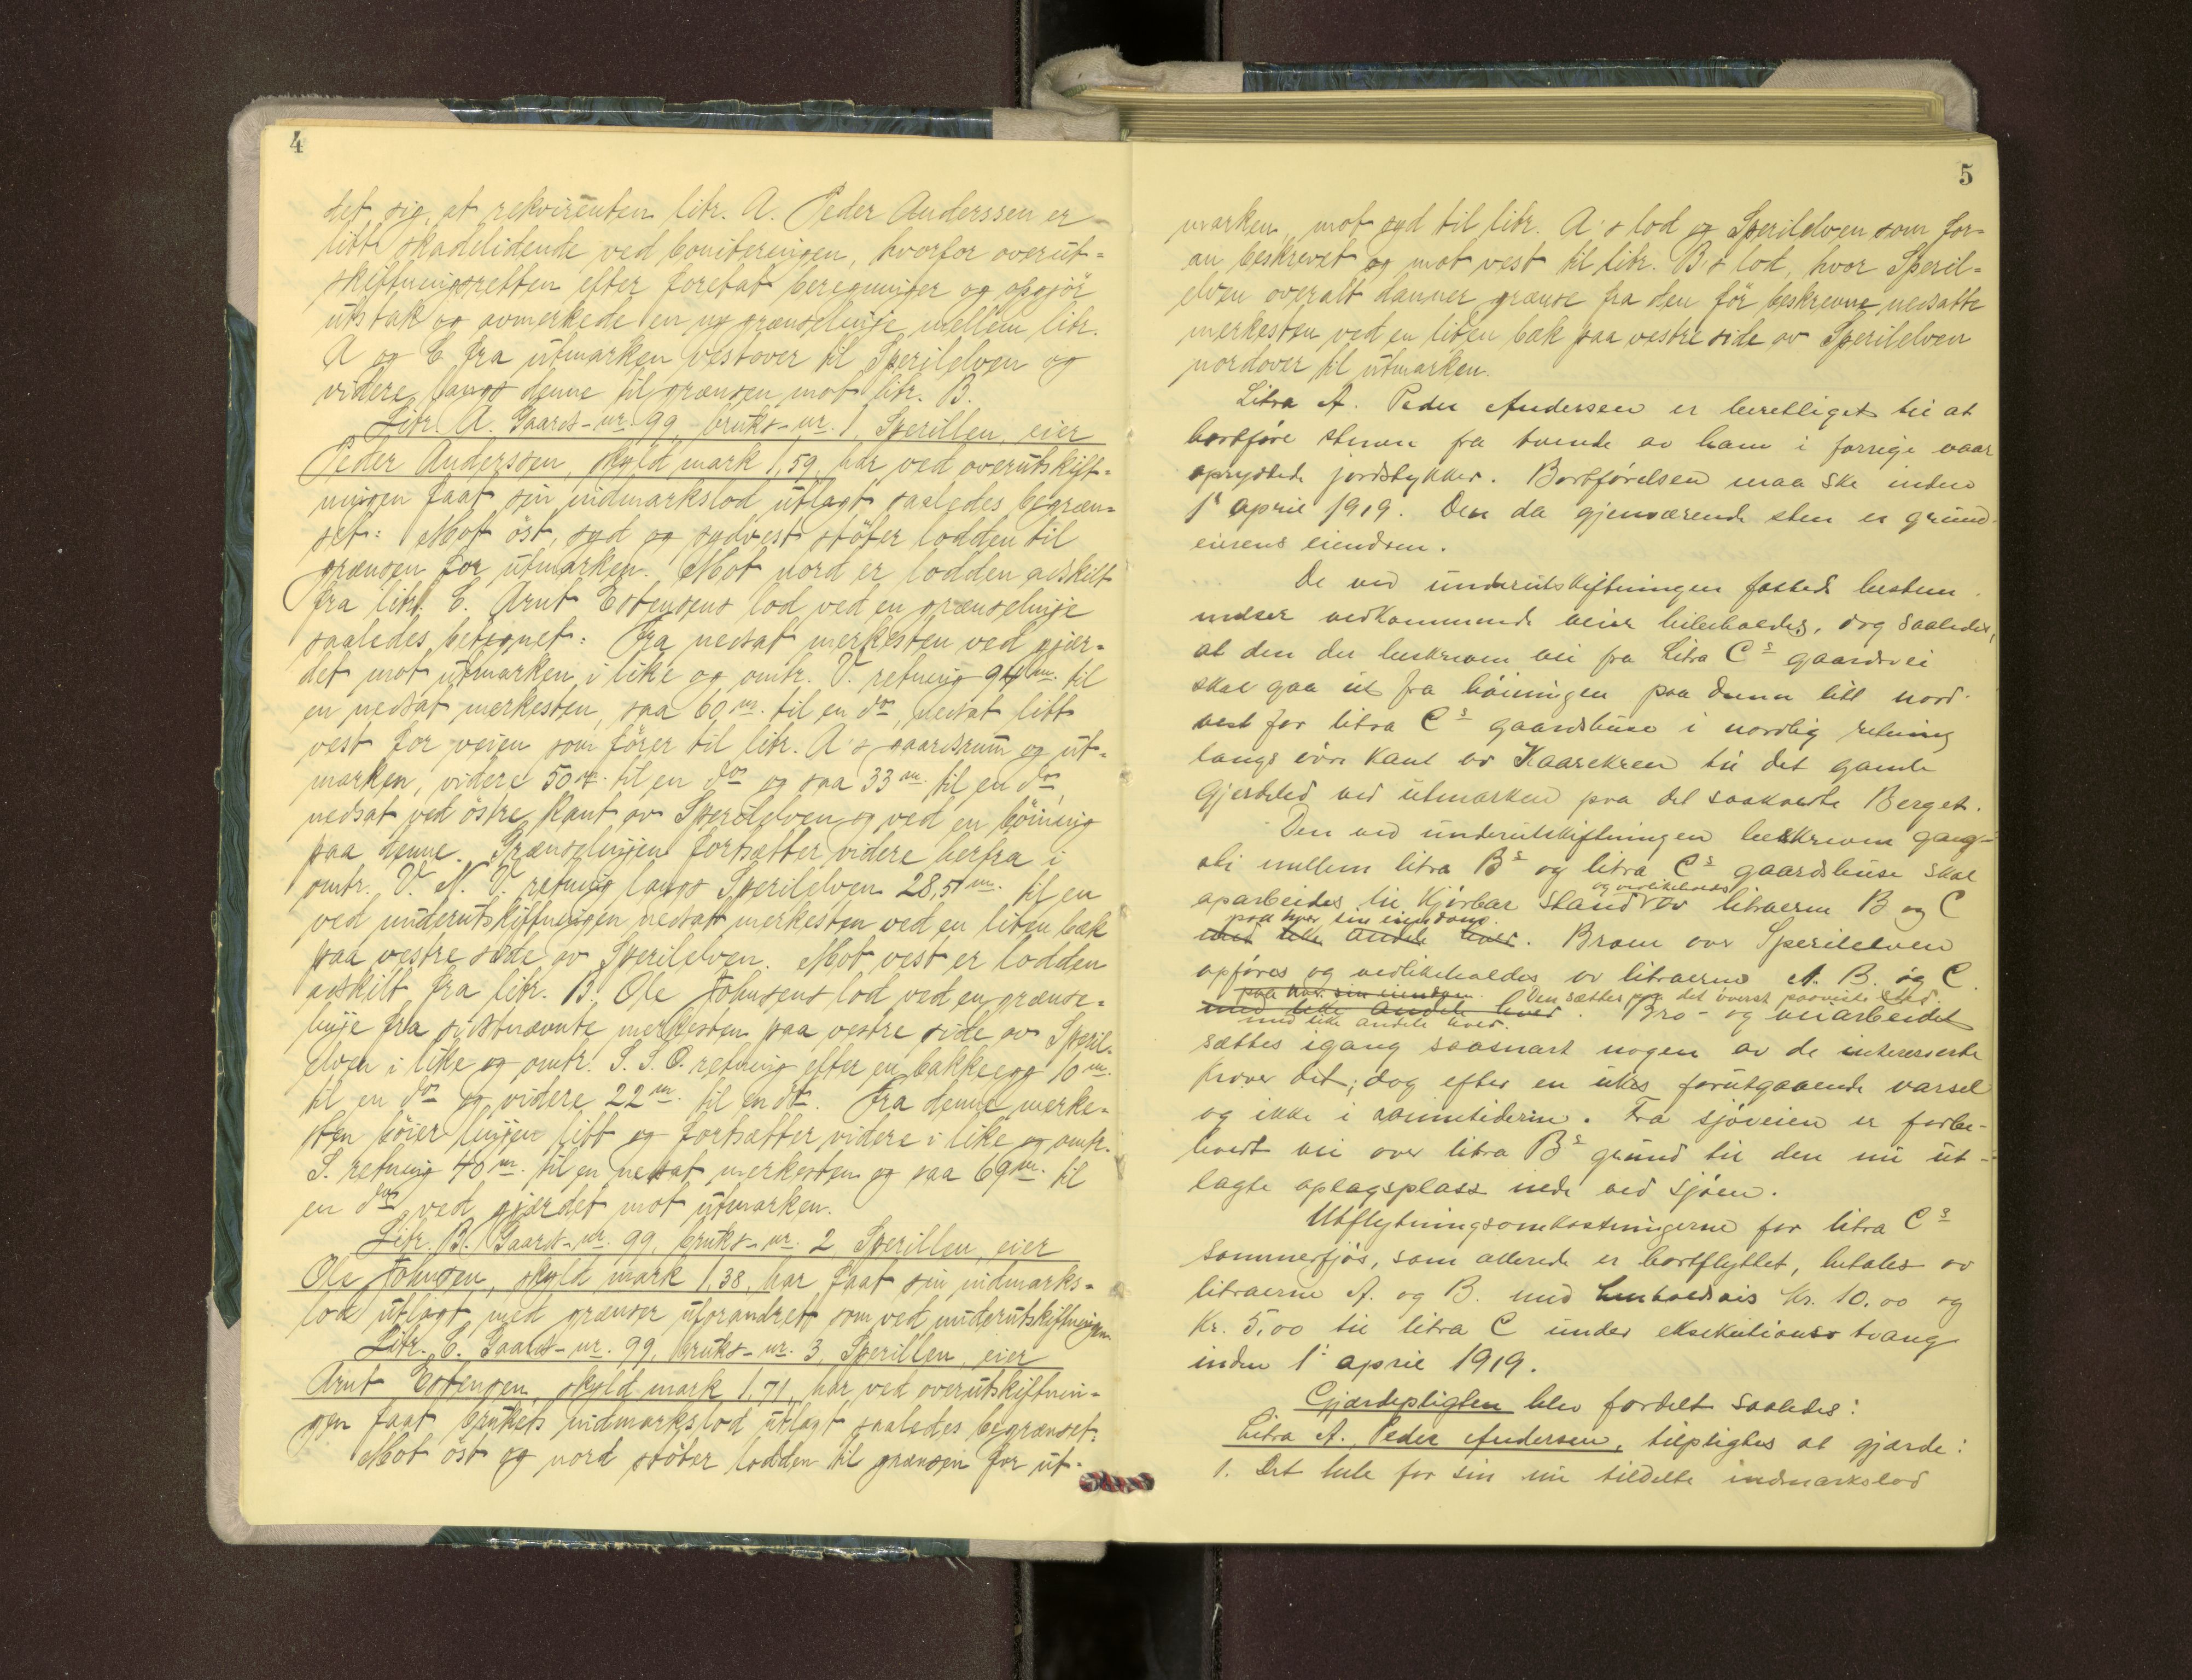 4
det sig, at rekvirenten litr. A. Peder Anderssen er
litt skadelidende ved boniteringen, hvorfor overut-
skiftningsretten efter foretat beregninger og opgjör
utstak og avmerkede en ny grænselinje mellem litr.
A og C fra utmarken vestover til Sperilelven og
videre langs denne til grænsen mot litr. B.
Litr. A. Gaards-nr. 99, bruks-nr. 1, Sperillen, eier
Peder Anderssen, skyld mark 1,59, har ved overutskift-
ningen faat sin indmarkslod utlagt saaledes begræn-
set: Mot öst, syd og sydvest stöter lodden til
grænsen for utmarken. Mot nord er lodden adskilt
fra litr. C. Arnt Estensens lod ved en grænselinje
saaledes betegnet: Fra nedsat merkesten ved gjær-
det mot utmarken i like og omtr. V. retning 94 m. til
en nedsat merkesten, saa 60 m. til en do, nedsat litt
vest for veien som förer til litr. A's gaardsrum og ut-
marken, videre 50 m. til en do og saa 33 m. til en do,
nedsat ved östre kant av Sperilelven og ved en böining
paa denne. Grænselinjen fortsætter videre herfra i
omtr. V. N. V. retning langs Sperilelven 28,5 m. til en
ved underutskiftningen nedsat merkesten ved en liten bæk
paa vestre side av Sperilelven. Mot vest er lodden
adskilt fra litr. B, Ole Johnsens lod ved en grænse-
linje fra sidstnævnte merkesten paa vestre side av Speril-
elven i like og omtr. S. S. O. retning efter en bakkeegg 10 m.
til en do og videre 22 m. til en do. Fra denne merke-
sten böier linjen litt og fortsætter videre i like og omtr.
S. retning 40 m. til en nedsat merkesten og saa 69 m. til
en do ved gjærdet mot utmarken.
Litr. B. Gaards-nr. 99, bruks-nr. 2 Sperillen, eier
Ole Johnsen, skyld mark 1,38, har faat sin indmarks-
lod utlagt med grænser uforandret som ved underutskiftningen
Litr. C. Gaards-nr. 99, bruks-nr. 3, Sperillen, eier
Arnt Estensen, skyld mark 1,71, har ved overutskiftnin-
gen faat brukets indmarkslod utlagt saaledes begrænset:
Mot öst og nord stöter lodden til grænsen for ut-
5
marken, mot syd til litr. A's lod og Sperilelven som for-
an beskrevet og mot vest til litr. B's lod, hvor Speril-
elven overalt danner grænse fra den för beskrevne nedsatte
merkesten ved en liten bæk paa vestre side av Sperilelven
nordover til utmarken.
Litra A. Peder Andersen er berettiget til at
bortføre stenen fra tvende av ham i forrige vaar
opryddede jordstykker. Bortførelsen maa ske inden
1' april 1919. Den da gjenværende sten er grund-
eierens eiendom.
De ved underutskiftningen fastsds bestem-
melser vedkommende veier beibeholdes, dog saaledes,
at den der beskreven vei fra Litra Cs gaardsvei
skal gaa ut fra böiningen paa denne litt nord-
vest for litra Cs gaardshuse i nordlig retning
langs övre kant av Kaarekren til det gamle
Gjerdeled ved utmarken paa det saakaldte Berget.
Den ved underutskiftningen beskreven gang-
sti mellem litra Bs og litra Cs gaardshuse skal
og vedlikeholdes
oparbeides til kjörbar stand av litraerne B og C
paa hver sin eiendom.
med like andele hver. Broen over Sperilelven
opføres og vedlikeholdes av litraerne A. B. og C.
paa hver sin eiendom. Den sættes paa det överst paaviste sted.
med like andele hver. Bro- og veiarbeidet
med like andele hver.
sættes igang saasnart nogen av de interesserte
kræver det; dog efter en ukes forutgaaende varsel
og ikke i vaanntiderne. Fra sjöveien er forbe-
holdt vei over litra Bs grund til den nu ut-
lagte oplagsplass nede ved sjöen.
Utflytningsomkostningerne for litra Cs
sommerfjös, som allerede er bortflyttet, betales av
litraerne A. og B. med henholdsvis kr. 10.00 og
kr. 5,00 til litra C under eksekutions tvang
inden 1' april 1919.
Gjærdepligten blev fordelt saaledes:
Litra A. Peder Andersen, tilpligtes at gjærde:
1. Det hele for sin nu tildelte indmarkslod